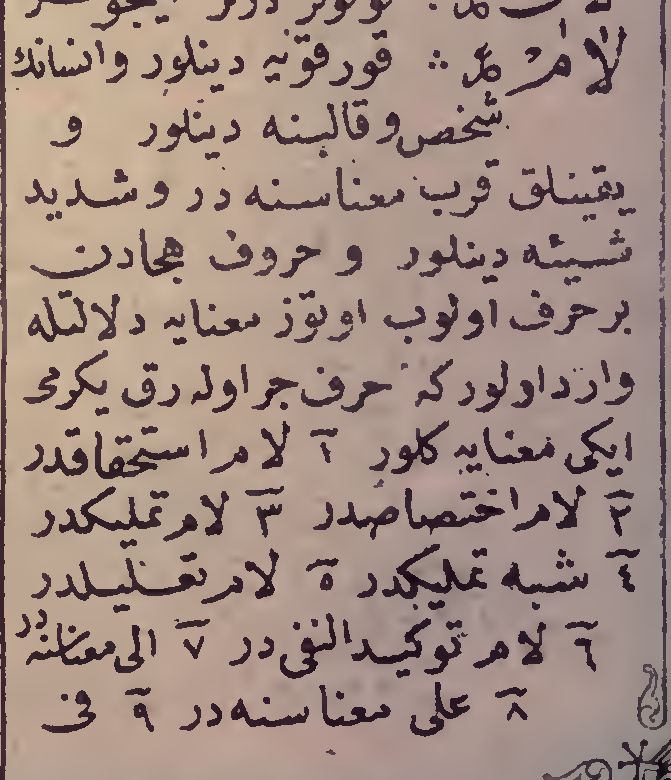 لام ؏ ∴ قورقویه دینلور وانسانك
شخص و قالبنه دینلور و
یقینلق قرب معناسنه در و شدید
شیئه دینلور و حروف هجادن
بر حرف اولوب اوتوز معنایه دلالتله
وارد اولور كه حرف جر اوله رق یكرمی
ایكی معنایه كلور ١ لام استحقاقدر
٢ لام اختصاصدر ٣ لام تملیكدر
٤ شبه تملیكدر ٥ لام تعلیلدر
٦ لام توكید النفی در ٧ الی معناسنه در
٨ علی معناسنه در ٩ فی